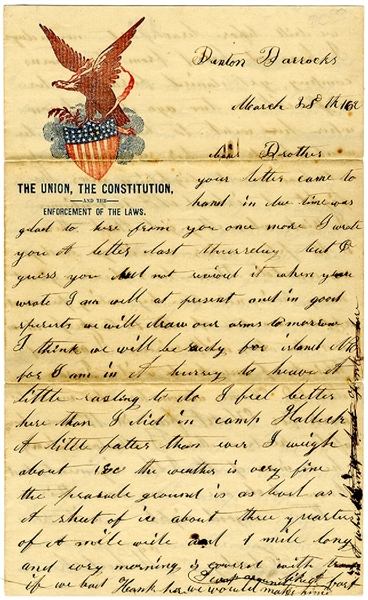 Benton Barrocks
March 28th 1862
Dear Brother
THE UNION, THE CONSTITUTION,
AND THE
ENFORCEMENT OF THE LAWS.
your letter came to
hand in due time was
glad to here from you one more I wrote
you A letter last thursday but I
guess you did not recived it when you
wrote I am well at present and in good
sperits we will draw our arms to morrow
I think we will be ready for island No
for I am in A hurry to have A
little rasling to do I feel better
here than I did in camp Halleck
A little fatter than ever I weigh
about the weather is very fine
the perade ground is as hard as
A sheet of ice about three quarters
of A mile wide and 1 mile long
and evry morning is coverd with
if we had Hank here we would make him